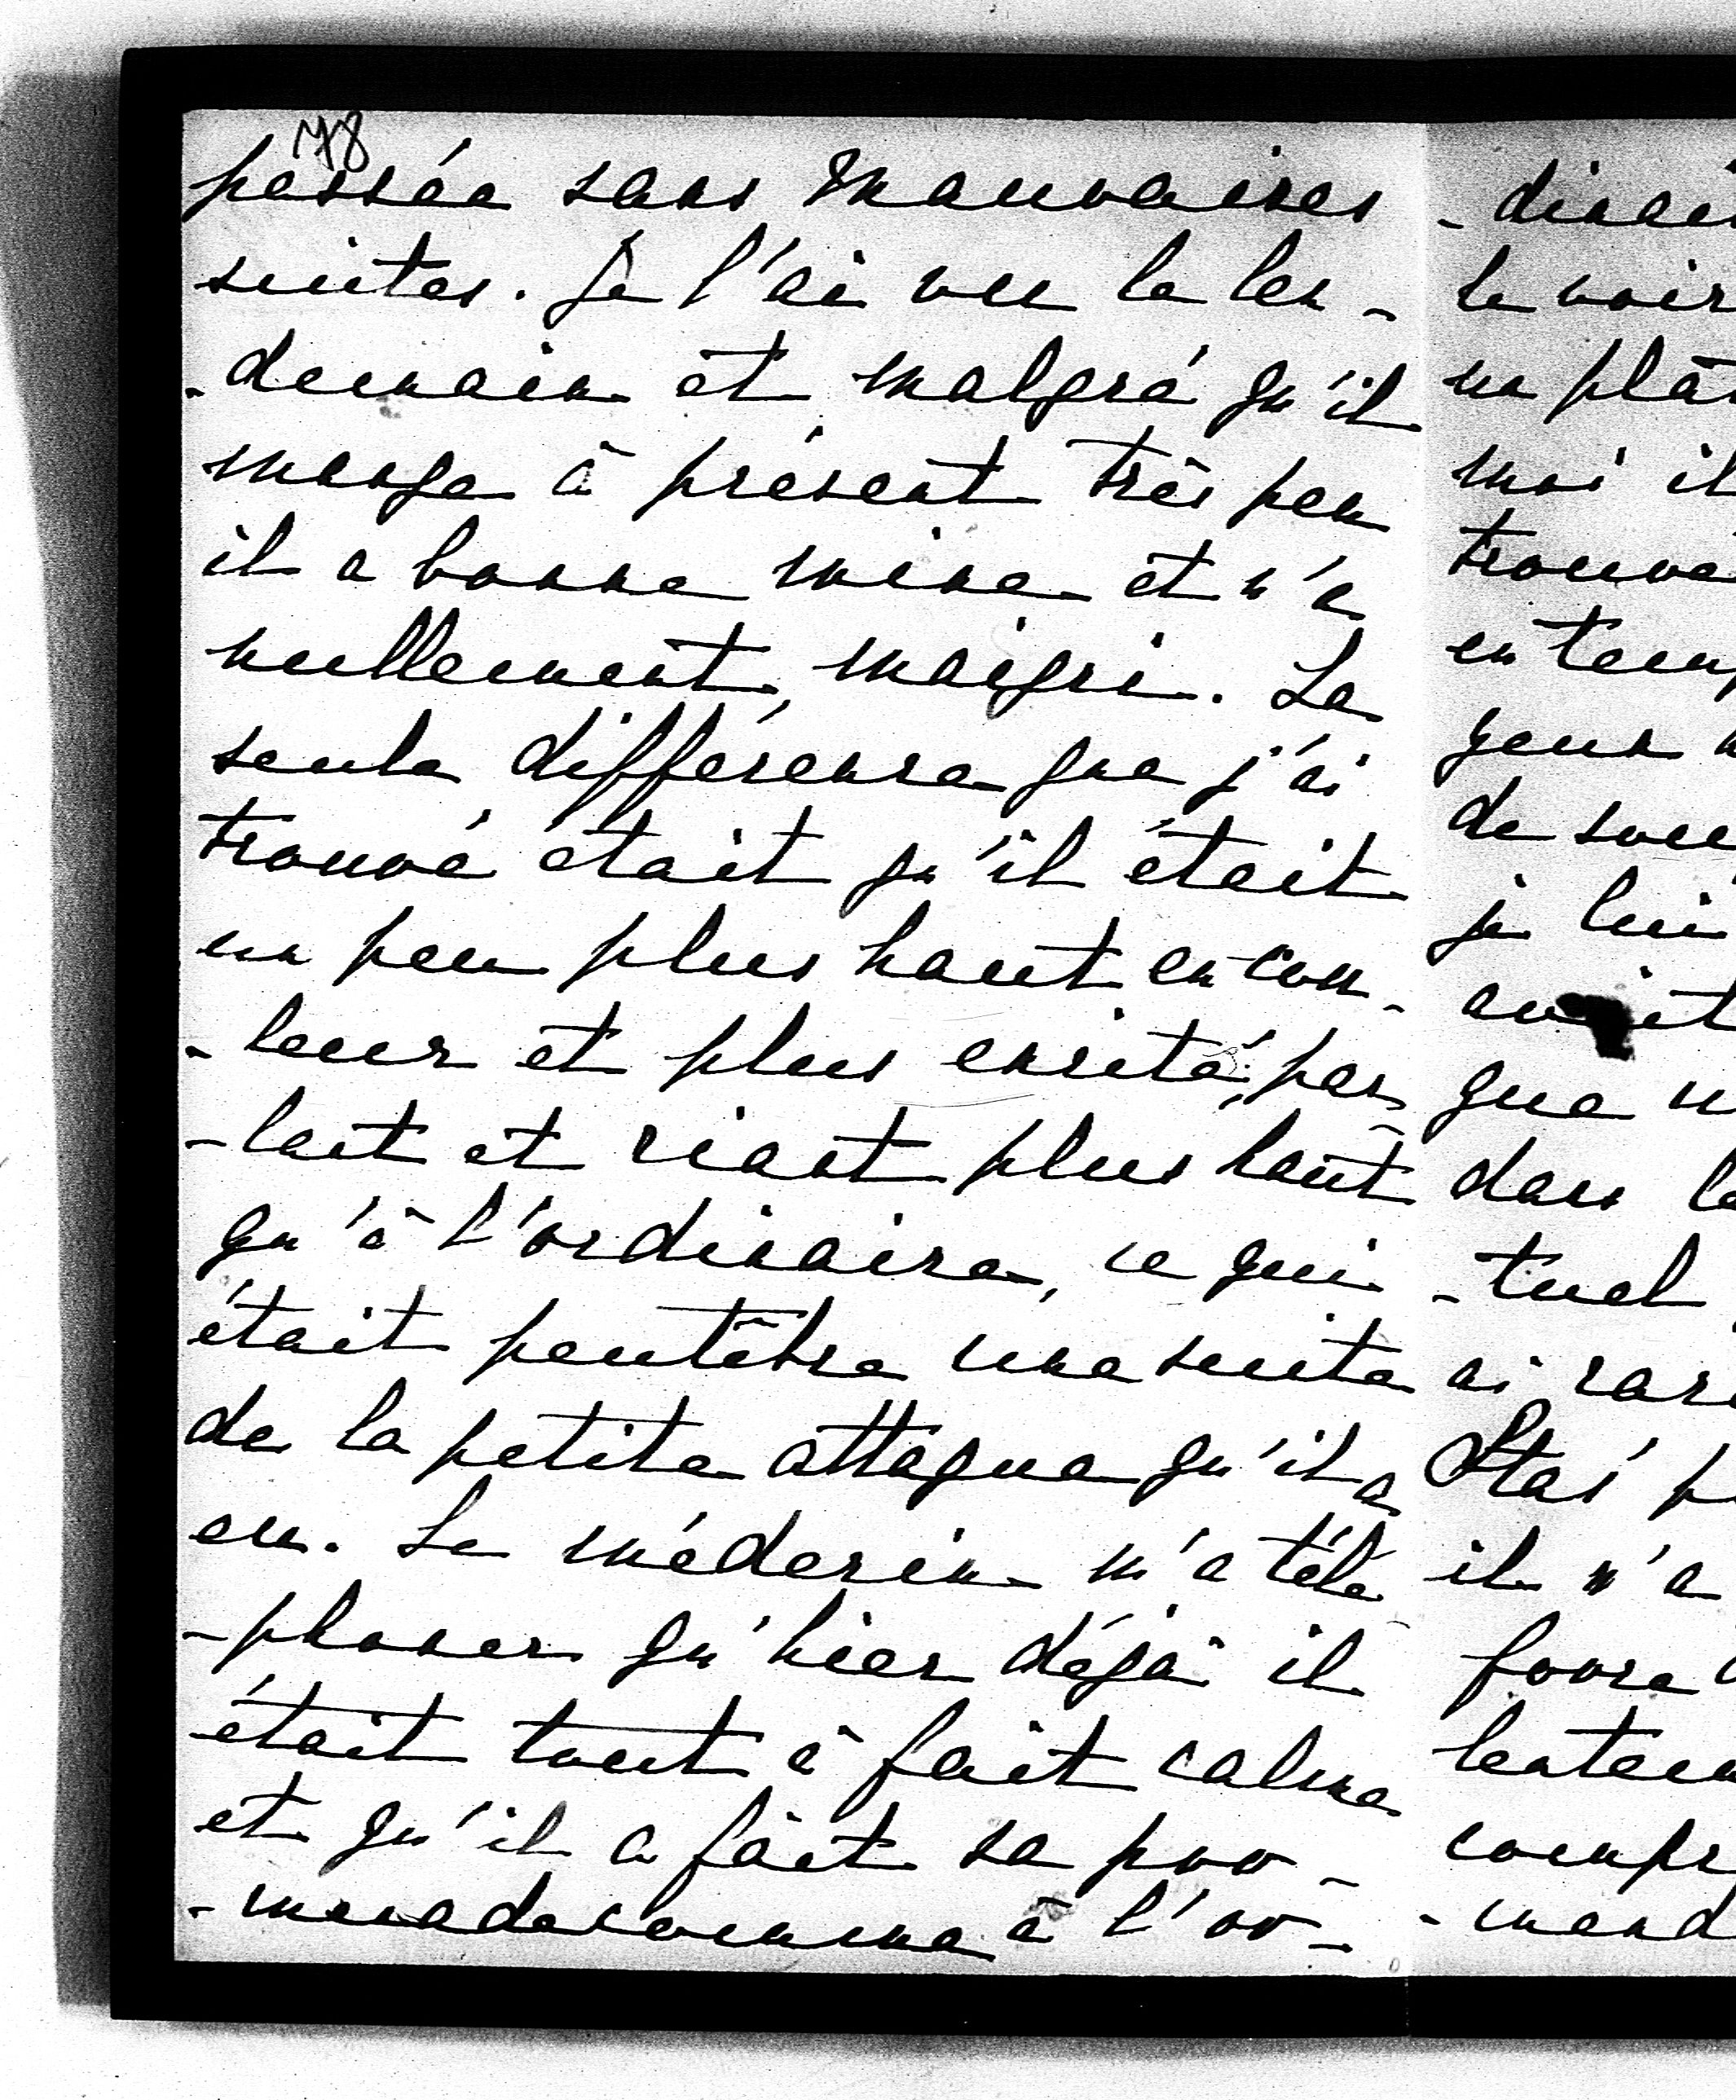 78
passée sans mauvaises
suites. Je l'ai vu le len-
-demain et malgré qu'il
mange à présent très peu
il a bonne mine et n'a
nullement maigri. La
seule différence que j'ai
trouvé était qu'il était
un peu plus haut en cou-
-leur et plus exité, par-
-lait et riait plus haut
qu'à l'ordinaire, ce qui
était peutêtre une suite
de la petite attaque qu'il a
eu. Le médecin m'a télé-
-phoner qu'hier déjà il
était tout à fait calme
et qu'il a fait sa pro-
-menade comme à l'or-
-dinai
le voir
un plât
moi il
trouve
en temp
yeux
de suc
je lui
avait
que n
dans le
-tuel
ai rare
Stas' p
il n'a
force
lentem
compr
-mand